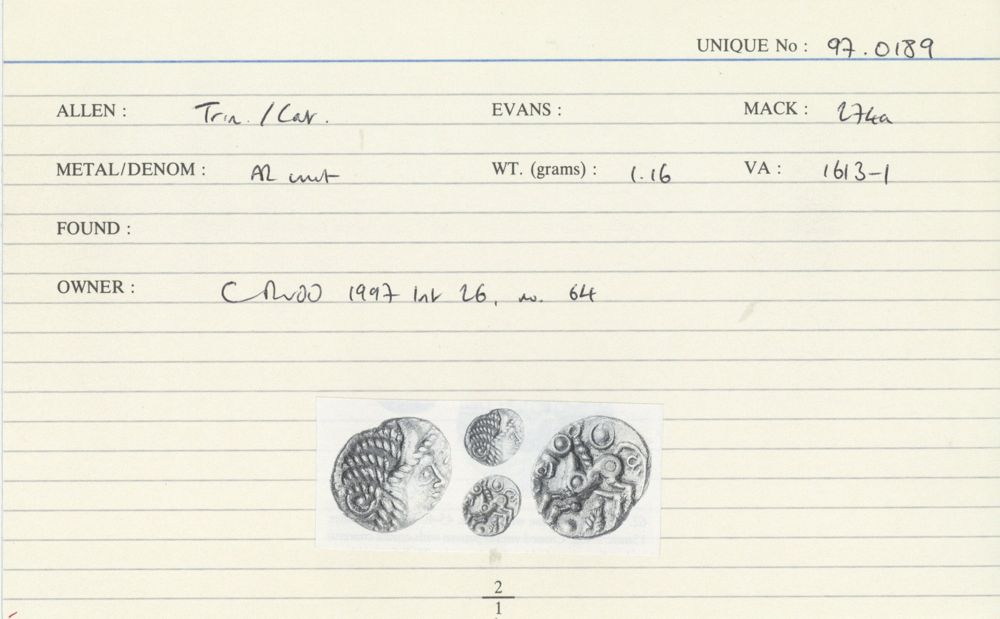 UNIQUE No : 97.0189
ALLEN : Trin. / Cat. EVANS : MACK : 274a
METAL/DENOM : AR unit WT. (grams) : 1.16 VA : 1613-1
FOUND :
OWNER : C RUDD 1997 list 26, no. 64
2
1